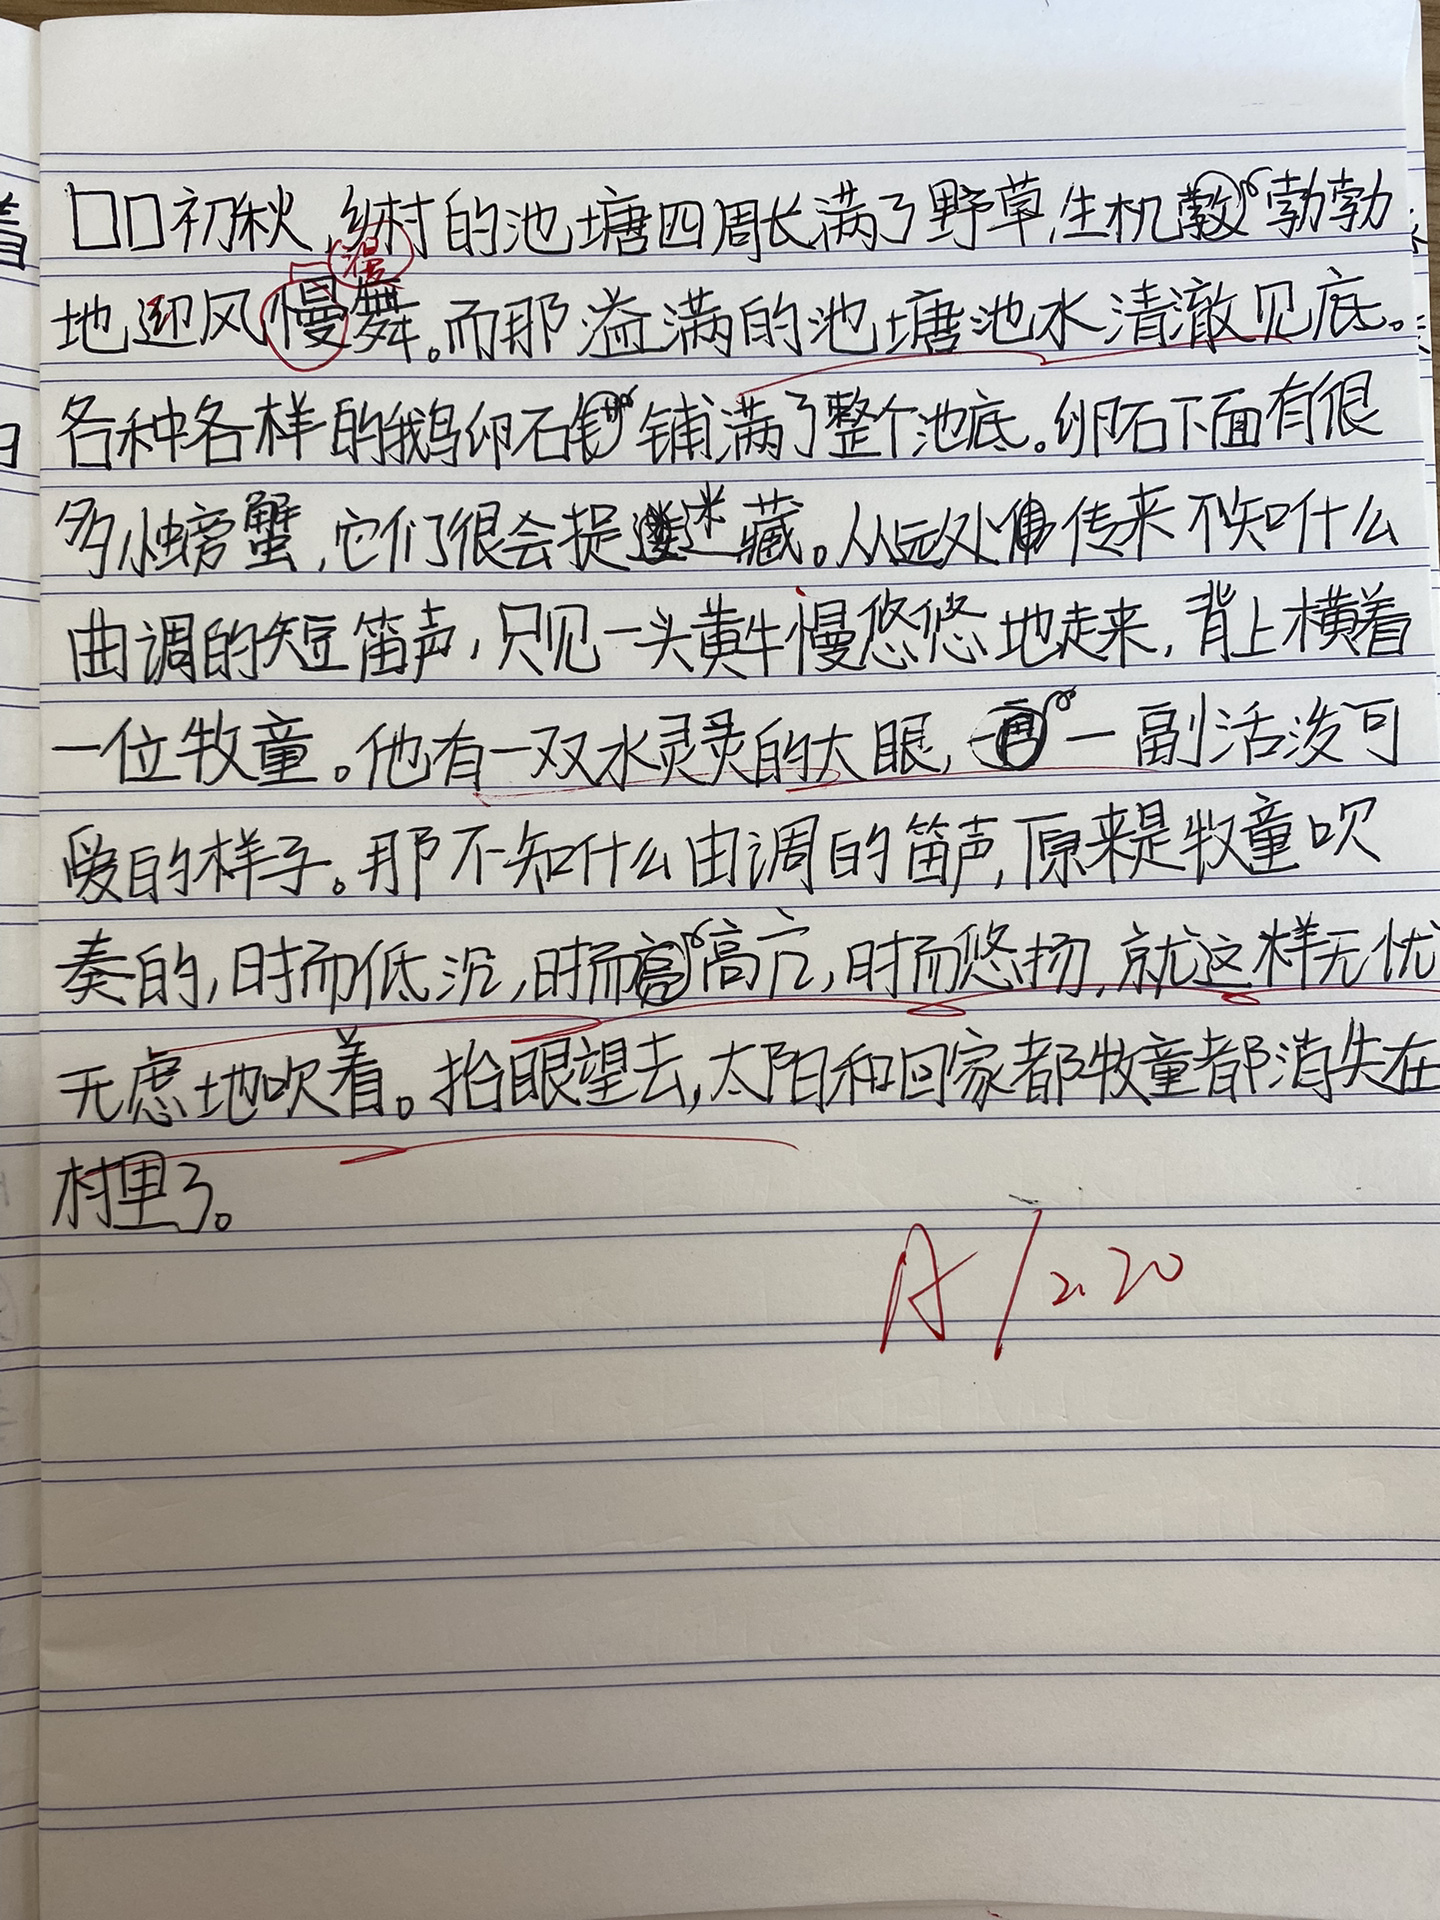 □□初秋,乡村的池塘四周长满了野草,生机勃勃
漫
地迎风慢舞。而那溢满的池塘池水清澈见底。
各种各样的鹅卵石铺满了整个池底。卵石下面有很
多小螃蟹,它们很会捉迷藏。从远处传来不知什么
曲调的短笛声,只见一头黄牛慢悠悠地走来,背上横着
一位牧童。他有一双水灵灵的大眼,一副活泼可
爱的样子。那不知什么曲调的笛声,原来是牧童吹
奏的,时而低沉,时而高亢,时而悠扬,就这样无忧
无虑地吹着。抬眼望去,太阳和回家都牧童都消失在
村里了。
A/2.20